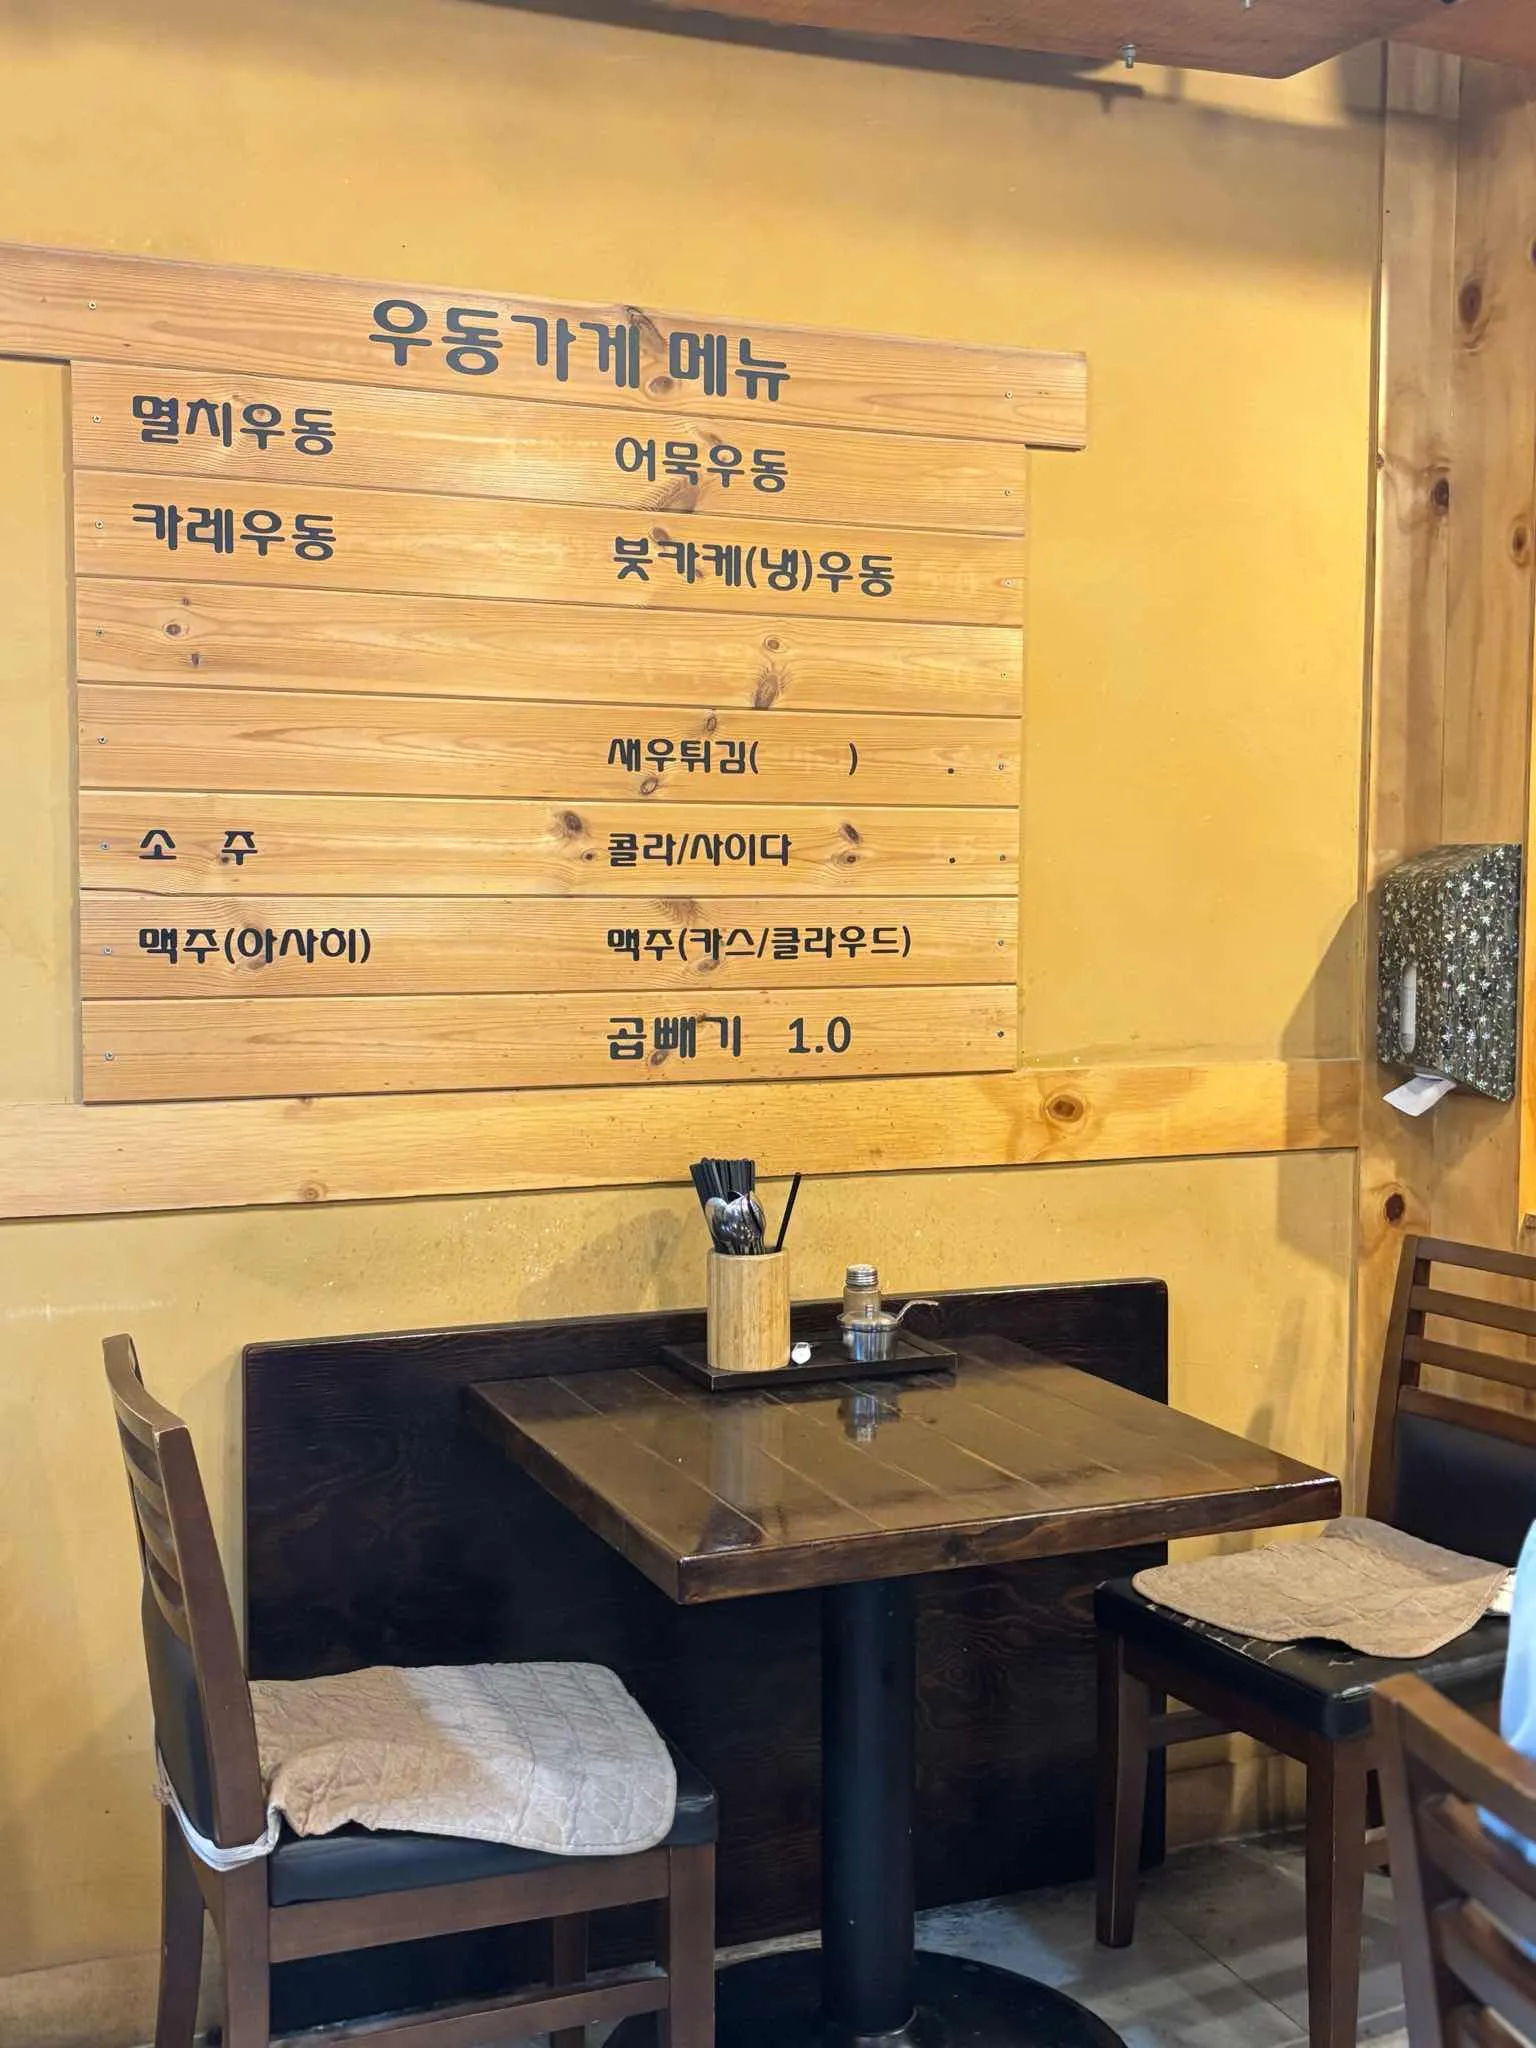 우동가게 메뉴
멸치우동 어묵우동
카레우동 붓카케(냉)우동
새우튀김( ) .
소 주 콜라/사이다 .
맥주(아사히) 맥주(카스/클라우드)
곱빼기 1.0